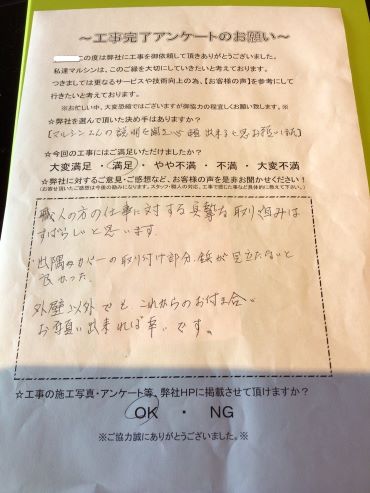 ～工事完了アンケートのお願い～
この度は弊社に工事を御依頼して頂きありがとうございました。
私達マルシンは、このご縁を大切にしていきたいと考えております。
つきましては更なるサービスや技術向上の為、【お客様の声】を参考にして
行きたいと考えております。
※お忙しい中、大変恐縮ではございますが御協力の程宜しくお願い致します。※
☆弊社を選んで頂いた決め手はありますか？
【マルシンさんの説明を聞き
☆今回の工事にはご満足いただけましたか？
大変満足 ・ 満足 ・ やや不満 ・ 不満 ・ 大変不満
☆弊社に対するご意見・ご感想など、お客様の声を是非お聞かせください！
(お寄せ頂いたご感想は今後の励みになります。スタッフ・職人の対応、工事で感じた事など具体的に教えて下さい。)
職人の方の仕事に対する真摯な取り組みは
すばらしいと思います。
出隅のカバーの取り付け部分、鋲が見立たないと
良かった。
外壁以外でも これからのお付き合い
お願い出来れば幸いです。
☆工事の施工写真・アンケート等、弊社HPに掲載させて頂けますか？
OK ・ NG
※ご協力誠にありがとうございました。※